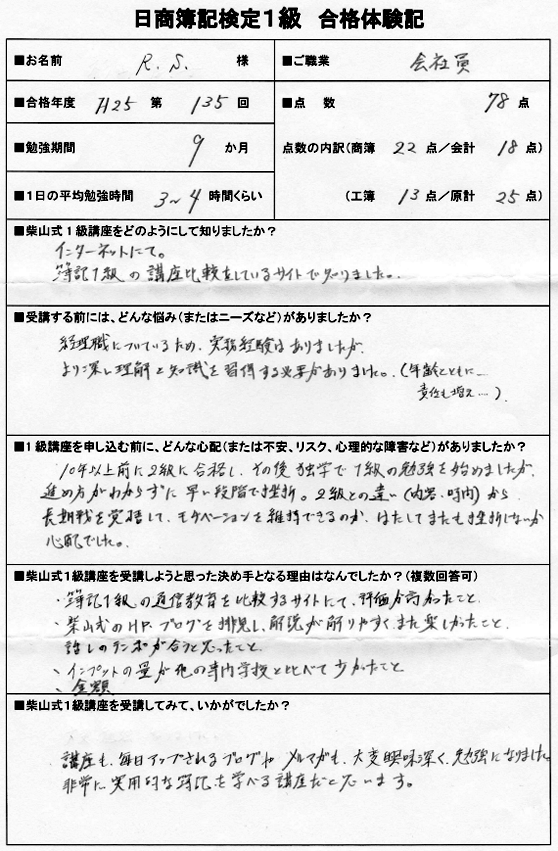 日商簿記検定1級 合格体験記
■お名前 R. S. 様 ■ご職業 会社員
■合格年度 H25 第 135 回 ■点 数 78 点
■勉強期間 9 か月 点数の内訳(商簿 22 点/会計 18 点)
■1日の平均勉強時間 3~4 時間くらい (工簿 13 点/原計 25 点)
■柴山式1級講座をどのようにして知りましたか?
インターネットにて。
簿記1級の講座比較をしているサイトで知りました。
■受講する前には、どんな悩み(またはニーズなど)がありましたか?
経理職についているため、実務経験はありましたが、
より深い理解と知識を習得する必要がありました。(年齢とともに
責任も増え…)
■1級講座を申し込む前に、どんな心配(または不安、リスク、心理的な障害など)がありましたか?
10年以上前に2級に合格し、その後独学で1級の勉強を始めましたが、
進め方がわからずに早い段階で挫折。2級との違い(内容・時間)から
長期戦を覚悟して、モチベーションを維持できるのか、はたしてまたも挫折しないか
心配でした。
■柴山式1級講座を受講しようと思った決め手となる理由はなんでしたか?(複数回答可)
・簿記1級の通信教育を比較するサイトにて、評価が高かったこと
・柴山式のHP、ブログを拝見し、解説が解りやすく、また楽しかったこと、
話しのテンポが合うと思ったこと
・インプットの量が他の専門学校と比べて少なかったこと
・金額
■柴山式1級講座を受講してみて、いかがでしたか?
講座も、毎日アップされるブログや メルマガも、大変興味深く、勉強になりました。
非常に実用的な簿記を学べる講座だと思います。